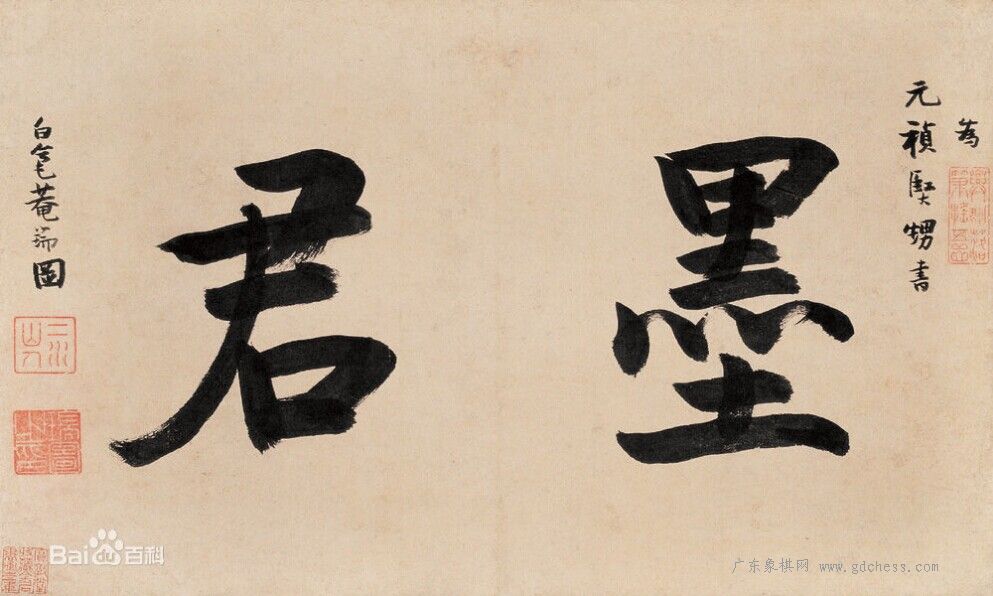 為
元禎賢甥書
墨君
白毫菴瑞圖
Bai du 百科
广东象棋网 www.gdchess.com